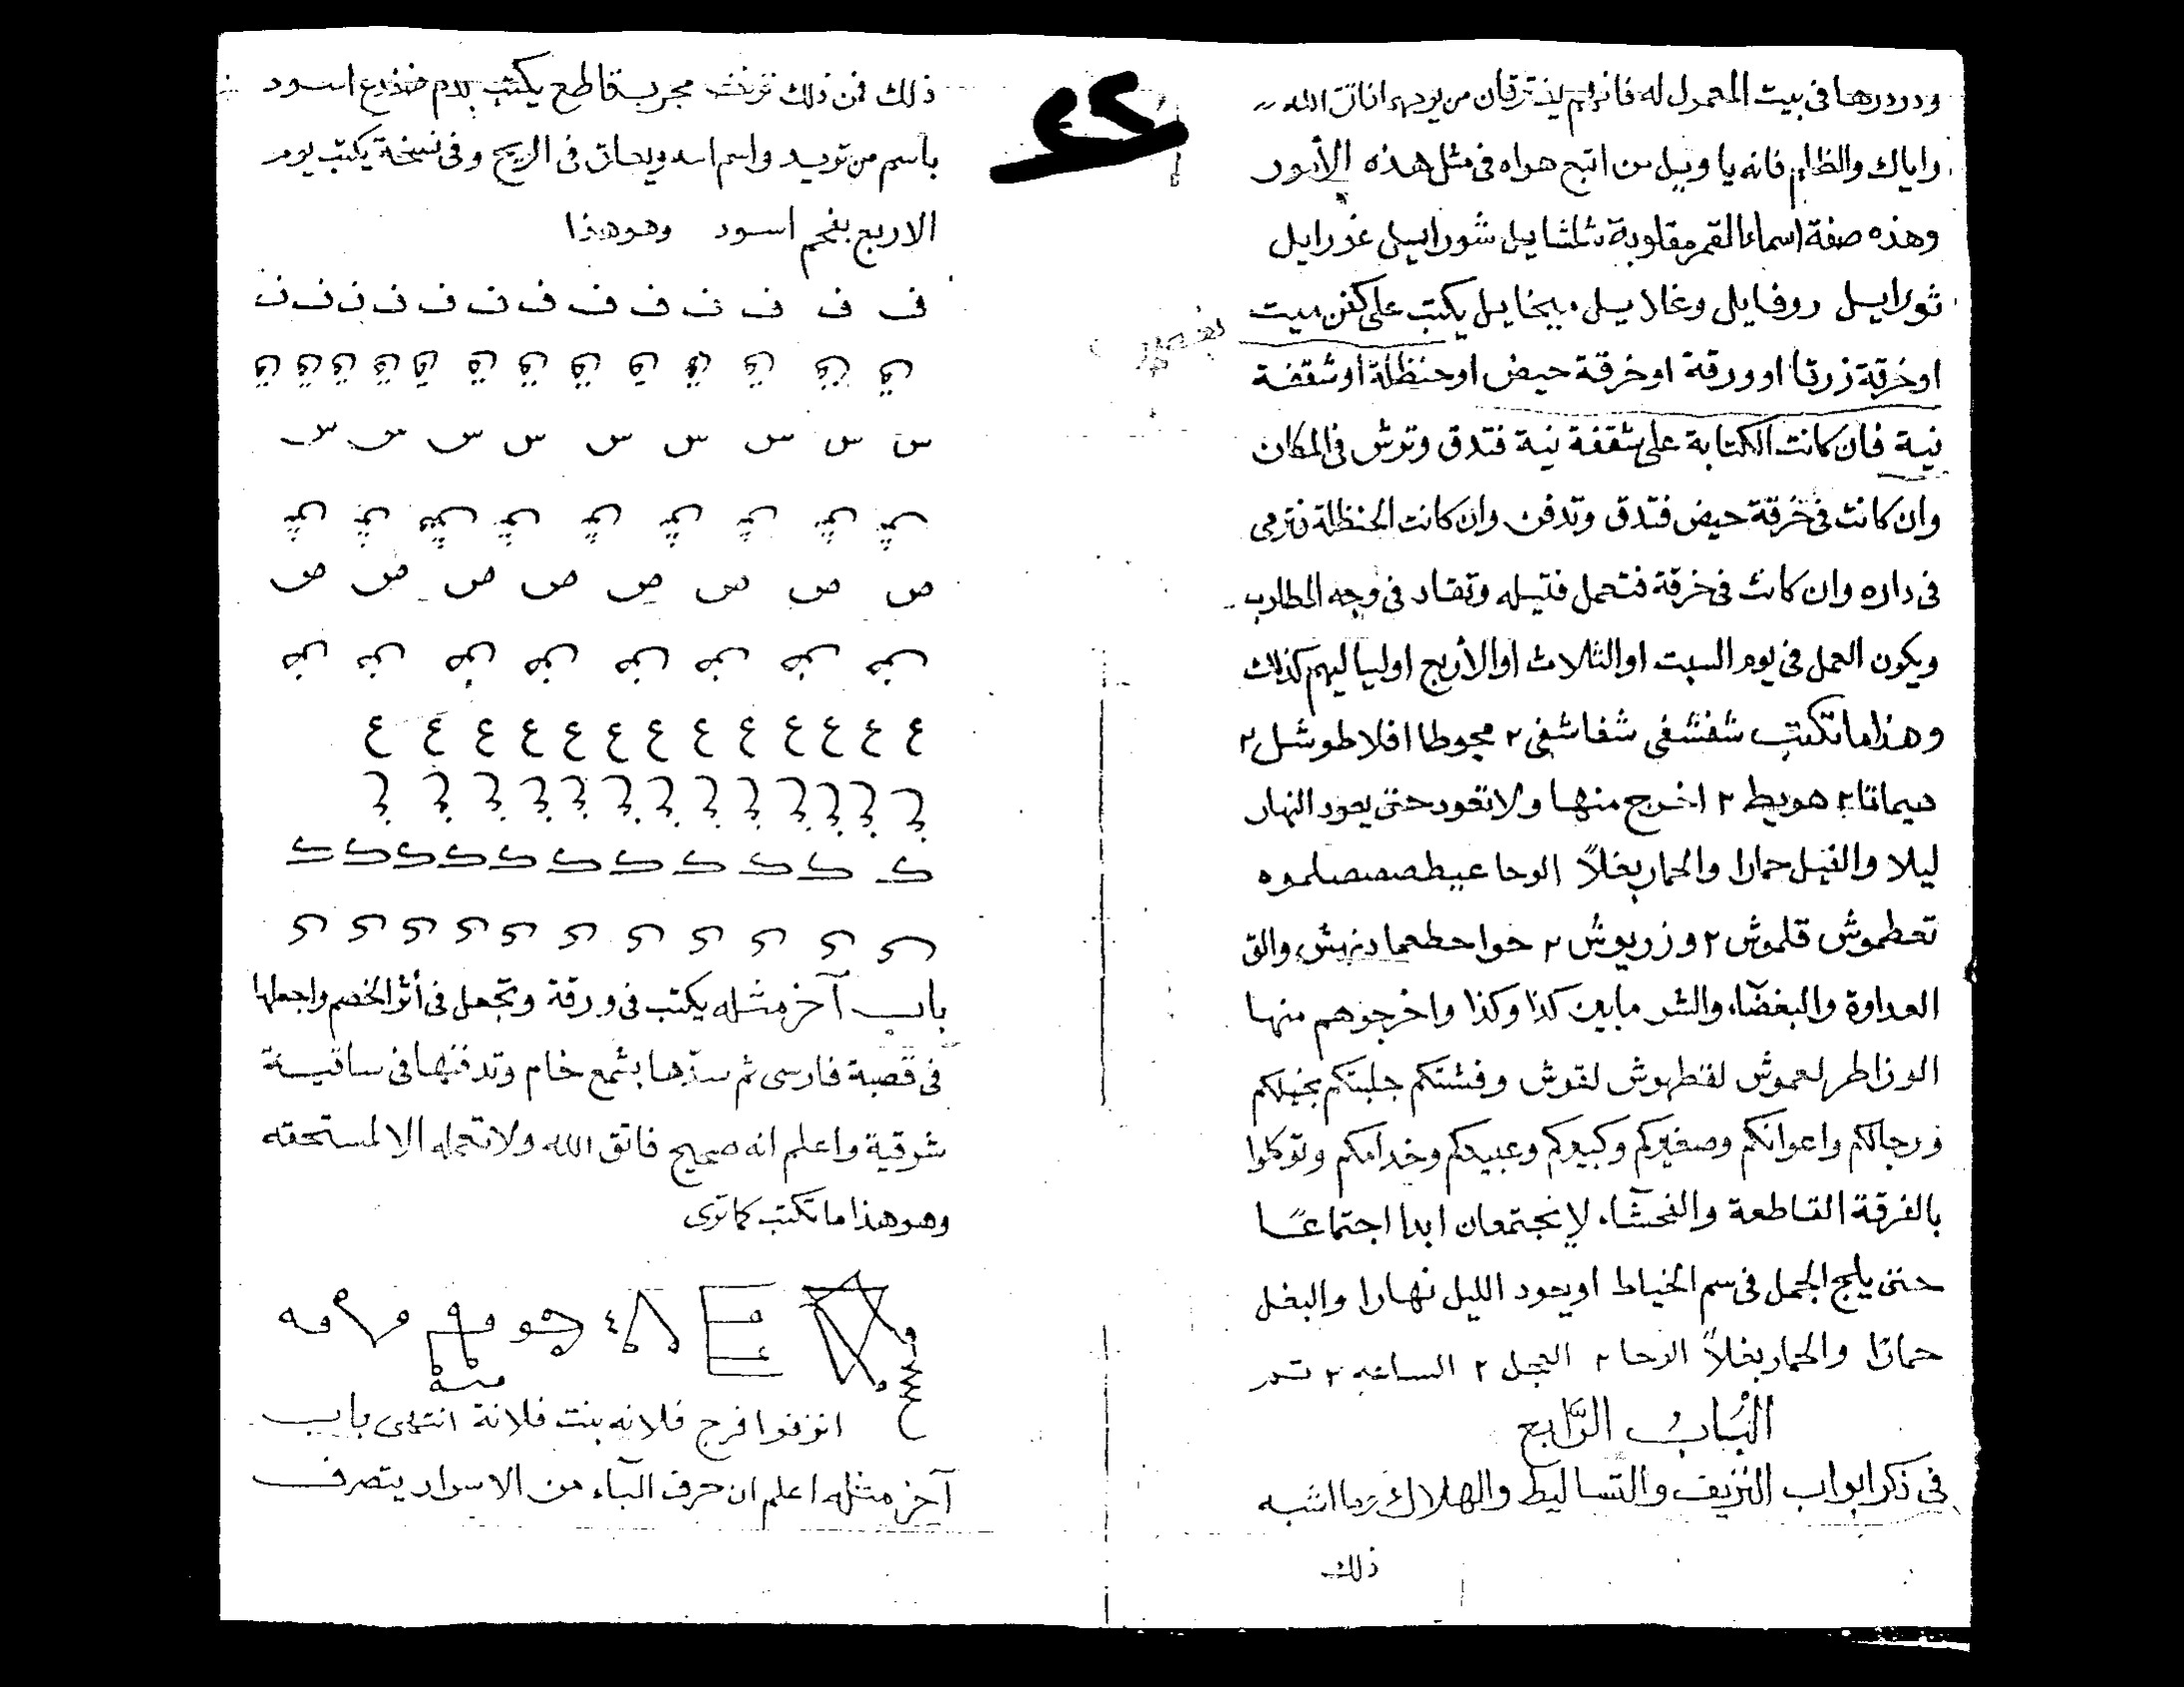 ودورها فى بيت المعمول له فانهم يفترقان من يومهم اناتق الله
واياك والظلم فانه يا ويل من اتبع هواه فى مثل هذه الأمور
وهذه صفة اسماء القمر مقلوبة شلشايل شورابيل عزرايل
ثورايل روفايل وغلاييل ميخايل يكتب على كفن ميت
اوخرقة زرقا اوورقة اوخرقة حيض اوحنظلة اوشقفة
نية فان كانت الكتابة على شقفة نية فتدق وترش فى المكان
وان كانت فى خرقة حيض فتدق وتدفن وان كانت الحنظلة فترمى
فى داره وان كانت فى خرقة فتعمل فتيله وتقاد فى وجه المطلوب
ويكون العمل فى يوم السبت اوالثلاث اوالأربع اولياليهم كذلك
وهذا ما تكتب شفشفى شفاشفى ٢ مجوطا افلاطوشل ٢
هيماتا ٢ هويط ٢ اخرج منها ولا تعود حتى يعود النهار
ليلا والفيل حمارا والحمار بغلاً الوحا عيطصصصلموه
تعطموش قلموش ٢ وزريوش ٢ والق
العداوة والبغضاء والشر مابين كذا وكذا واخرجوهم منها
لعموش لقطهوش لقوش وفشتكم جلبتكم بخيلكم
ورجالكم واعوانكم وصغيركم وكبيركم وعبيدكم وخدامكم وتوكلوا
بالفرقة القاطعة والفحشاء لا يجتمعان ابدا اجتماعًا
حتى يلج الجمل فى سم الخياط اويعود الليل نهارا والبغل
حمارًا والحمار بغلاً الوحا ٢ العجل ٢ الساعه ٢ تمر
البابُ الرّابع
فى ذكر ابواب النزيف والتساليط والهلاك وما اشبه
ذلك
٤٢
ذلك فمن ذلك نزيف مجرب قاطع يكتب بدم ضفدع اسود
باسم من تريد واسم امه ويعلق فى الريح وفى نسخة يكتب يوم
الاربع بفحم اسود وهو هذا
ف ف ف ف ف ف ف ف ف ف ف ف ف
س س س س س س س س س
ص ص ص ص ص ص ص ص
ع ع ع ع ع ع ع ع ع ع ع ع
ك ك ك ك ك ك ك ك ك ك ك
باب آخر مثله يكتب فى ورقة وتجعل فى أثر الخصم واجعلها
فى قصبة فارسى ثم سدّها بشمع خام وتدفنها فى ساقية
شرقية واعلم انه صحيح فاتق الله ولاتعمله الا لمستحقه
وهو هذا ما تكتب كما ترى
انزفوا فرج فلانه بنت فلانة انتهى باب
آخر مثله اعلم ان حرف الباء من الاسرار يتصرف